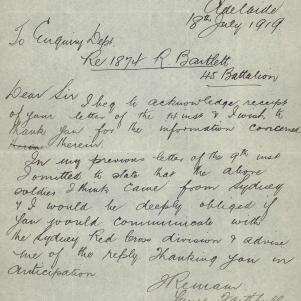 Adelaide
18th July 1919.
To Enquiry Dept
Re 1874 R. Bartlett
45 Battalion
Dear Sir
I beg to acknowledge receipt
of your letter of the 14 inst & I wish to
thank you for the information concerned
therein.
In my previous letter of the 9th inst
I omitted to state that the above
soldier I think came from Sydney
& I would be deeply obliged if
you would communicate with
the Sydney Red Cross division & advise
me of the reply. Thanking you in
anticipation
I Remain
Yours Faithfully